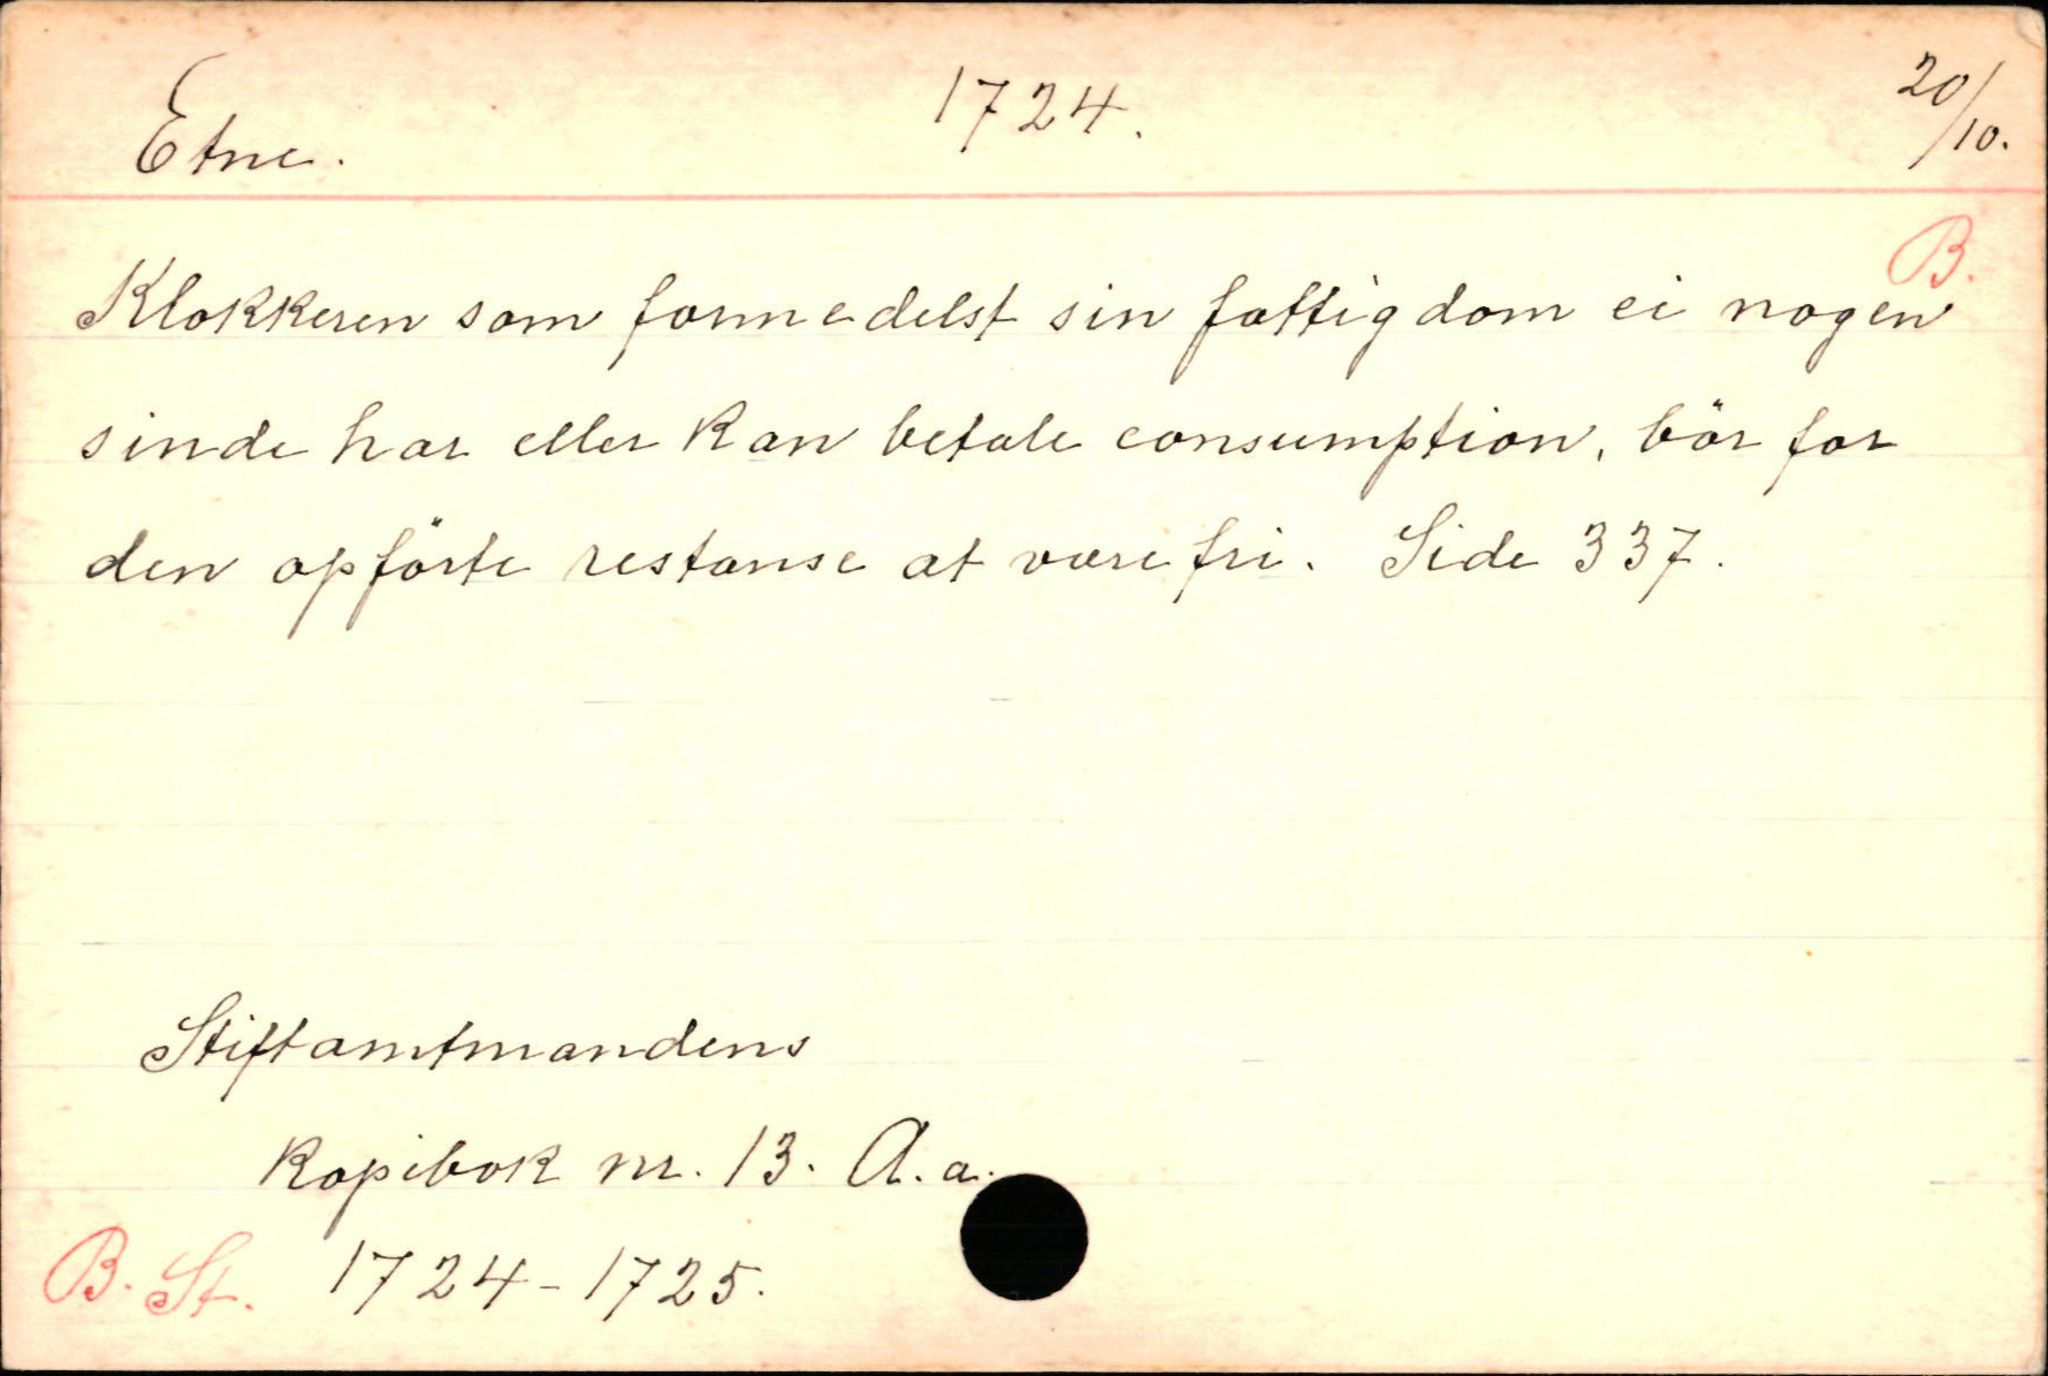 Etne. 1724. 20/10.
B.
Klokkeren som formedelst sin fattigdom ei nogen
sinde har eller kan betale consumption, bör for
den opförte restanse at være fri. Side 337.
Stiftamtmandens
Kopibok nr. 13. A. a.
B. St. 1724-1725.